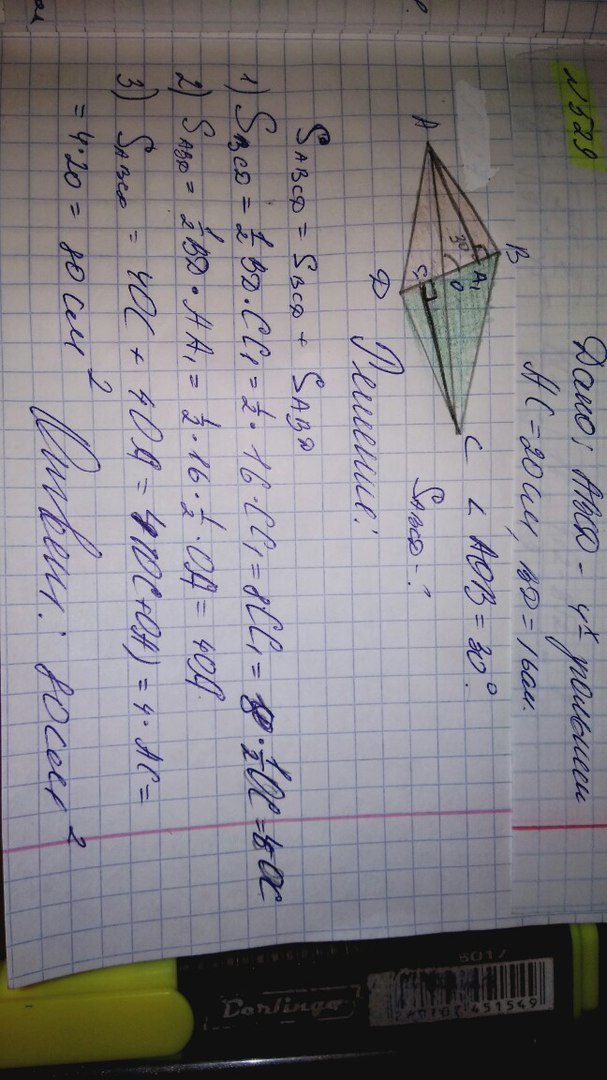 N 529
Дано: ABCD - 4х угольник
AC = 20 см, BD = 16 см.
∠ AOB = 30°.
SABCD - ?
A
B
C
D
A1
O
30°
C1
Решение:
SABCD = SBCD + SABD
1) SBCD = 1/2 BD · CC1 = 1/2 · 16 · CC1 = 8CC1 = 8 · 1/2 OC = 4 OC
2) SABD = 1/2 BD · AA1 = 1/2 · 16 · 1/2 · OA = 4OA.
3) SABCD = 4OC + 4OA = 4(OC+OA) = 4 · AC =
= 4·20 = 80 см²
Ответ: 80 см²
Darlingo
8017
451549